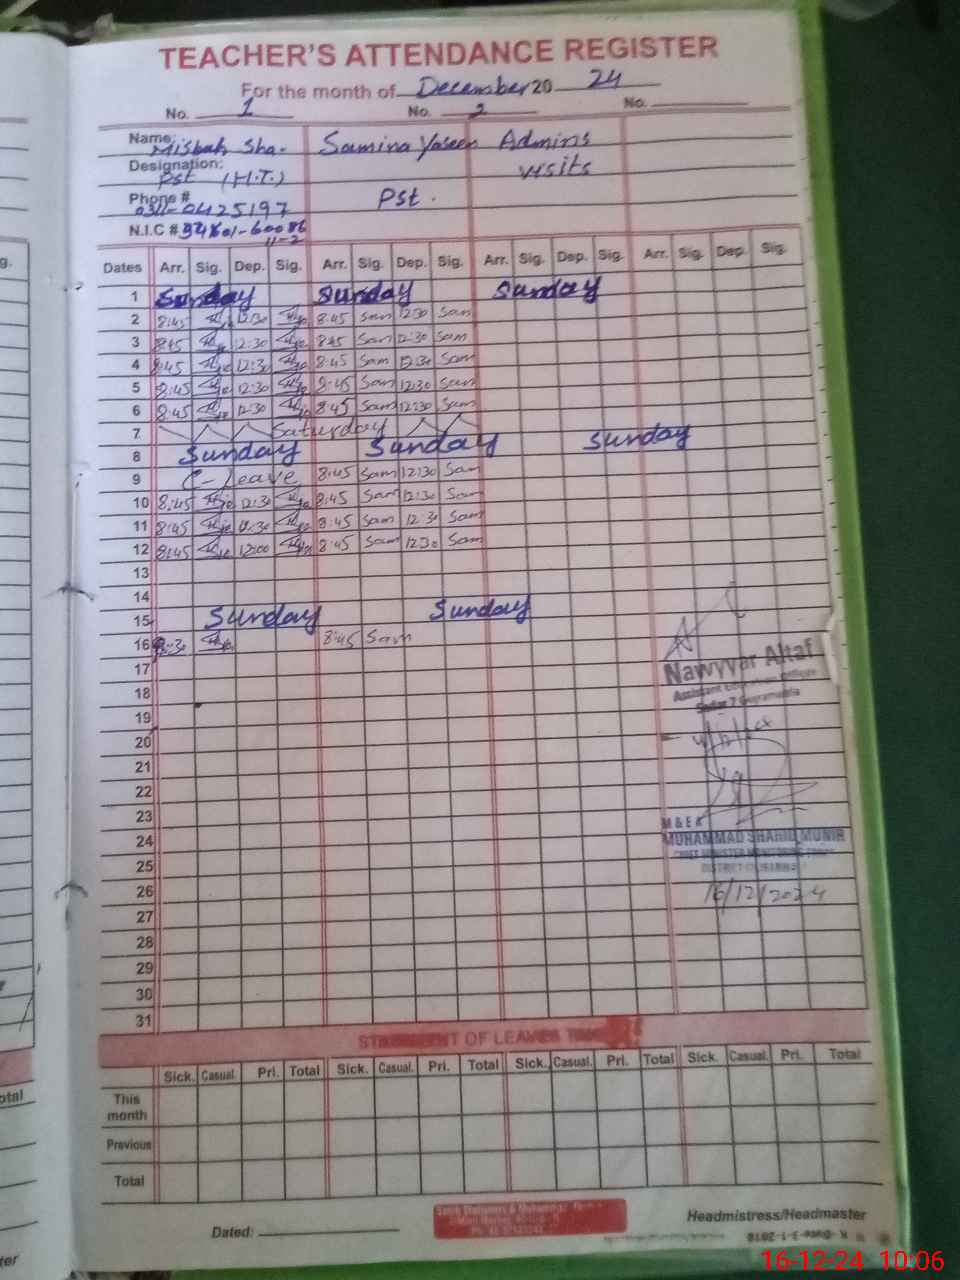 TEACHER'S ATTENDANCE REGISTER
For the month of December 20 24
No. 1 No. 2 No.
Name: Misbah Sha- Samina Yaseen Admins
Designation: Pst (H.T.) visits
Phone # 0311-0425197 Pst.
N.I.C #
Dates Arr. Sig. Dep. Sig. Arr. Sig. Dep. Sig. Arr. Sig. Dep. Sig. Arr. Sig. Dep. Sig.
1 Sunday Sunday Sunday
2 8:45 12:30 8:45 Sam 12:30 Sam
3 8:45 12:30 8:45 Sam 12:30 Sam
4 8:45 12:30 8:45 Sam 12:30 Sam
5 8:45 12:30 8:45 Sam 12:30 Sam
6 8:45 12:30 8:45 Sam 12:30 Sam
7 Saturday
8 Sunday Sunday Sunday
9 C-Leave 8:45 Sam 12:30 Sam
10 8:45 12:30 8:45 Sam 12:30 Sam
11 8:45 12:30 8:45 Sam 12:30 Sam
12 8:45 12:00 8:45 Sam 12:30 Sam
13
14
15 Sunday Sunday
16 8:30 8:45 Sam
17 Nawyyar Altaf
18 Assistant Education Officer
19
20
21
22
23
M & E A
24 MUHAMMAD SHAHID MUNIR
25 CHIEF MINISTER MONITORING FORCE
26 16/12/2024
27
28
29
30
31
STATEMENT OF LEAVES
Sick. Casual. Pri. Total Sick. Casual. Pri. Total Sick. Casual. Pri. Total Sick. Casual. Pri. Total
This
month
Previous
Total
Dated: Headmistress/Headmaster
16-12-24 10:06